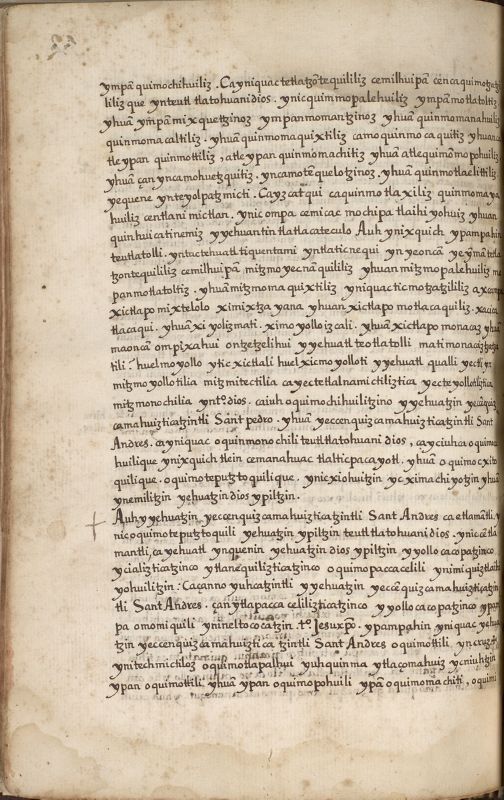 ympā quimochihuiliz. Cayniquac tetlatzōtequililiz cemilhuipā cenca quimotzatzi
liliz que ynteutl tlatohuani dios. ynic quimmopalehuiliz ympā motlatoltiz
yhuā ympā mixquetzinoz ympan momantzinoz yhuā quinmomanahuiliz
quinmocaltiliz. yhuā quinmomaquixtiliz camo quinmocaquitiz yhuan a
tle ypan quinmottiliz, atle ypan quinmomachitiz yhuā atle quimāmopohuiliz
yhuā çan yncamohuetzquitiz. yncamotēquelotzinoz. yhuā quinmotlaelittiliz.
yequene ynteyolpatzmicti. Cayzcatqui ca quinmotlaxiliz quinmomaya
huiliz centlani mictlan. ynic ompa cemicac mochipa tlaihiyohuiz yhuan
quinhuicatinemiz yyehuantin tlatlacateculo Auh ynixquich ypampahin
teutlatolli. yntuctehuatl tiquentami yntlaticnequi ynyeoncā yeymā tetla
tzontequililiz cemilhuipā mitzmoyecnāquililiz yhuan mitzmopalehuiliz mo
panmotlatoltiz. yhuā mitzmomaquixtiliz yniquac ticmotzatzililiz axcampa
xictlapo mixtelolo ximixtzayana yhuan xictlapo motlacaquiliz. xacica
tlacaqui. yhuā xiyolizmati. ximoyolloizcali. yhuā xictlapo monacaz yhuā
maoncā ompixahui ontzetzelihui yyehuatl teotlatolli matimonacaztzatza
tili. huel moyollo ytic xictlali huel xicmoyolloti yyehuatl qualli yectli yc
mitzmoyollotilia mitzmitectilia cayectetlalnamictiliztica yecteyollotiliztica
mitzmonochilia yntº dios. caiuh oquimochihuilitzino yyehuatzin yecēquiz
camahuizticatzintli Sant pedro. yhuā yeccenquizcamahuizticatzintli Sant
Andres. cayniquac oquinmonochili teutl tlatohuani dios, ca çciuhca oquimo
huilique ynixquich tlein cemanahuac tlalticpacayotl. yhuā oquimocxito
quilique. oquimoteputztoquilique. ynicxiohuitzin ycximachiyotzin yhuā
ynemilitzin yehuatzin dios ypiltzin.
Auh yyehuatzin yeccenquizcamahuizticatzintli Sant Andres ca etlamātli. y
nic oquimoteputztoquili yehuatzin ypiltzin teutl tlatohuani dios. ynic cētla
mantli, ca yehuatl ynquenin yehuatzin dios ypiltzin yyollocacopatzinco
ycializticatzinco ytlanequilizticatzinco oquimopaccacelili ynimiquiztlaihi
yohuilitzin: Caçanno yuhcatzintli yyehuatzin yeccēquizcamahuizticatzin
tli Sant Andres. çan ytlapaccaceliliizticatzinco yyollocacopatzinco ypam
pa omomiquili yninel tococatzin. tº. Jesu xpō. ypampahin yniquac yehua
tzin yeccenquizcamahuizticatzintli Sant Andres oquimottili, yncruztzin
ynitech micliloz oquimotlapalhui yuhquinma ytlaçomahuizycniuhtzin
ypan oquimottili yhuā ypan oquimopohuili ypā oquimomachiti, oquimi